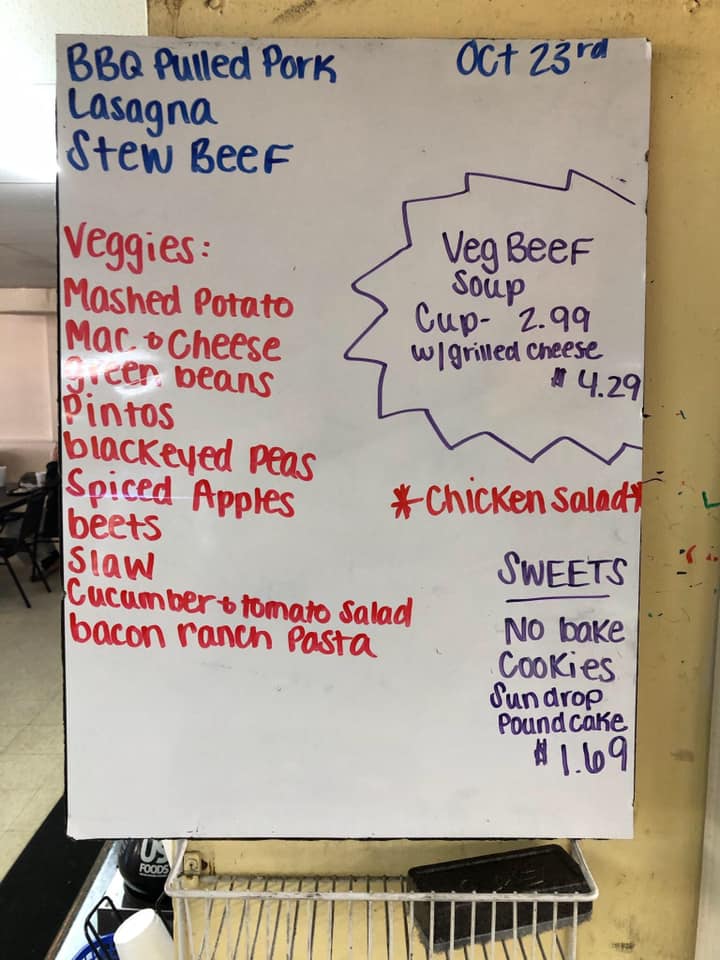 BBQ Pulled Pork
Lasagna
Stew Beef
Oct 23rd
Veggies:
Mashed Potato
Mac & Cheese
green beans
Pintos
blackeyed peas
Spiced Apples
beets
Slaw
Cucumber & tomato Salad
bacon ranch Pasta
Veg Beef
Soup
Cup- 2.99
w/grilled cheese
$ 4.29
*Chicken Salad*
SWEETS
No bake
Cookies
Sundrop
Poundcake
$ 1.69
US
FOODS